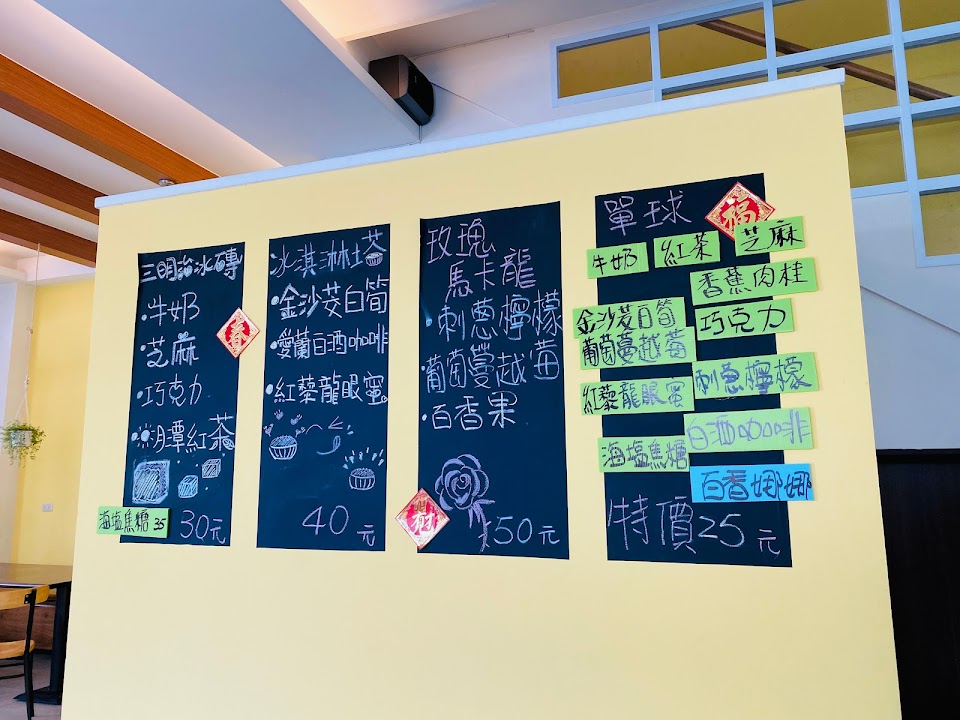 三明治冰磚
·牛奶
·芝麻
·巧克力
·☀月潭紅茶
海塩焦糖 35
30元
春
冰淇淋塔
·金沙茭白筍
·愛蘭白酒咖啡
·紅藜龍眼蜜
40元
玫瑰
馬卡龍
·刺蔥檸檬
·葡萄蔓越莓
·百香果
財
50元
單球
福
牛奶
紅茶
芝麻
香蕉肉桂
金沙茭白筍
巧克力
葡萄蔓越莓
紅藜龍眼蜜
刺蔥檸檬
海塩焦糖
白酒咖啡
百香娜娜
特價25元